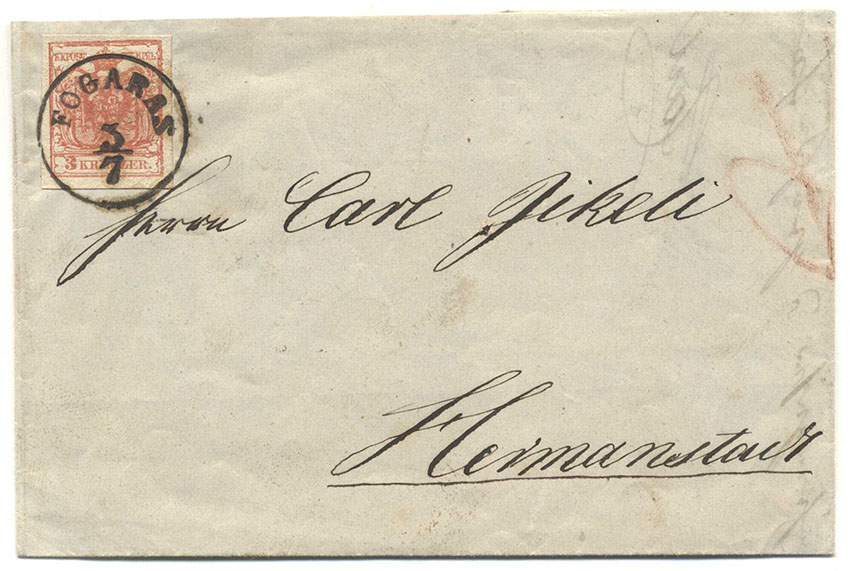 KKPOST-STEMPEL
FOGARAS
3/7
3 KREUZER.
Herrn Carl Jikeli
Hermanstadt